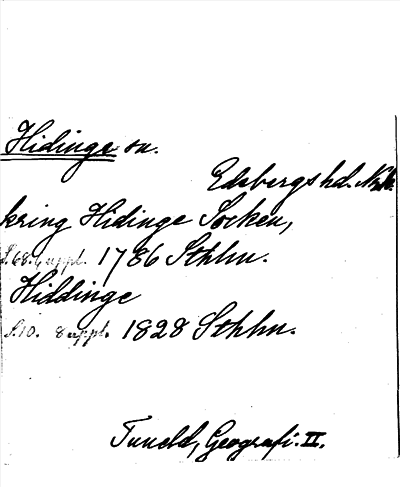 Hidinge sn.
Edsbergs hd. Nrk.
kring Hidinge Socken,
S. 68. 6 uppl. 1786 Sthlm.
Hiddinge
S. 10. 8 uppl. 1828 Sthlm.
Tuneld, Geografi. II.